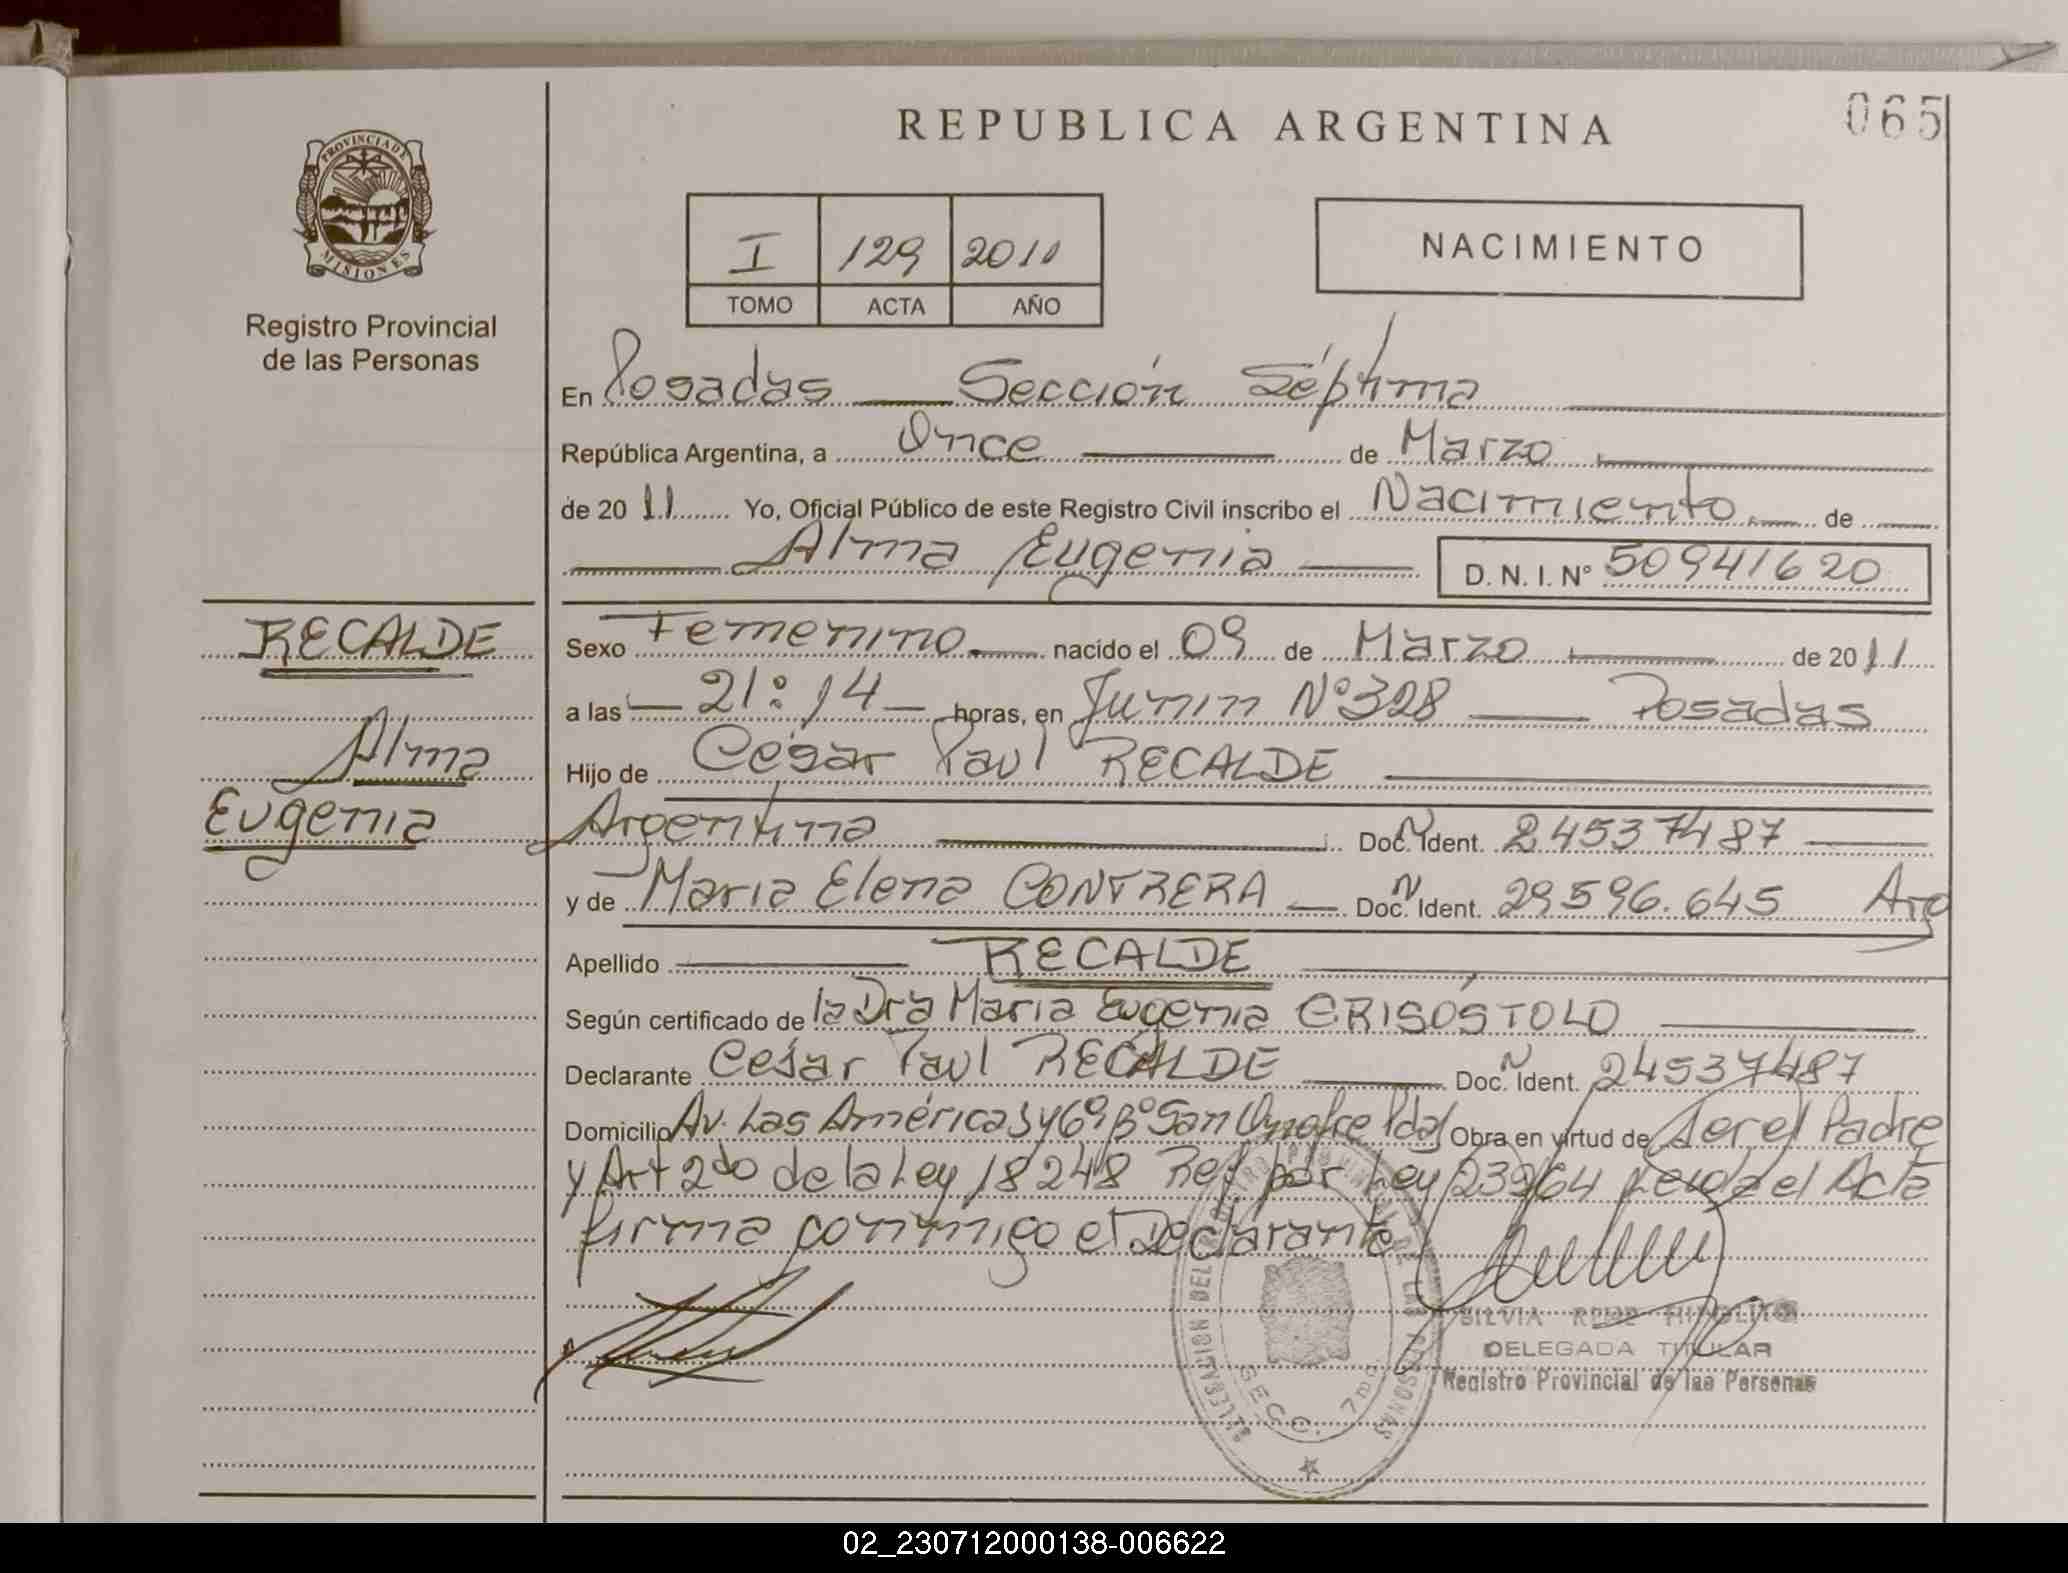 065
REPUBLICA ARGENTINA
PROVINCIA DE
MISIONES
Registro Provincial
de las Personas
I 129 2011
TOMO ACTA AÑO
NACIMIENTO
En Posadas Sección Séptima
República Argentina, a Once de Marzo
de 2011 Yo, Oficial Público de este Registro Civil inscribo el Nacimiento de
Alma Eugenia D. N. I. Nº 50941620
RECALDE
Alma
Eugenia
Sexo Femenino nacido el 09 de Marzo de 2011
a las 21:14 horas, en Junin Nº 328 Posadas
Hijo de César Paul RECALDE
Argentina Doc. N Ident. 24537487
y de Maria Elena CONTRERA Doc. N Ident. 29596.645 Arg
Apellido RECALDE
Según certificado de la Dra Maria Eugenia CRISÓSTOLO
Declarante César Paul RECALDE Doc. N Ident. 24537487
Domicilio Av. Las Américas y 6º Bº San Onofre Pdas Obra en virtud de Ser el Padre
y Art 2do de la Ley 18248 Ref por Ley 23264 Leida el Acta
firma conmigo el Declarante
DELEGACION DEL REGISTRO PROVINCIAL DE LAS PERSONAS
SECC. 7ma
SILVIA HIPOLITO
DELEGADA TITULAR
Registro Provincial de las Personas
02_230712000138-006622